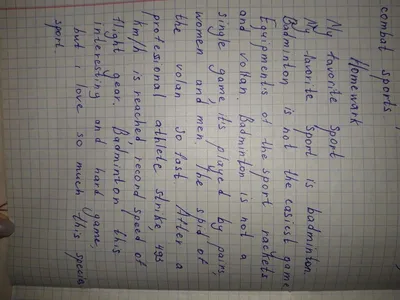 combat sports,
Homewark
My favorite sport
My favorite sport is badminton.
Badminton is not the easiest game
Equipments of the sport rackets
and vollan. Badminton is not a
single game, its played by pairs,
women and men. The spid of
the volan so fast. After a
professional athlete strike, 493
km/h is reached record speed of
flight gear. Badminton this
interesting and hard game,
but i love so much this
sport.